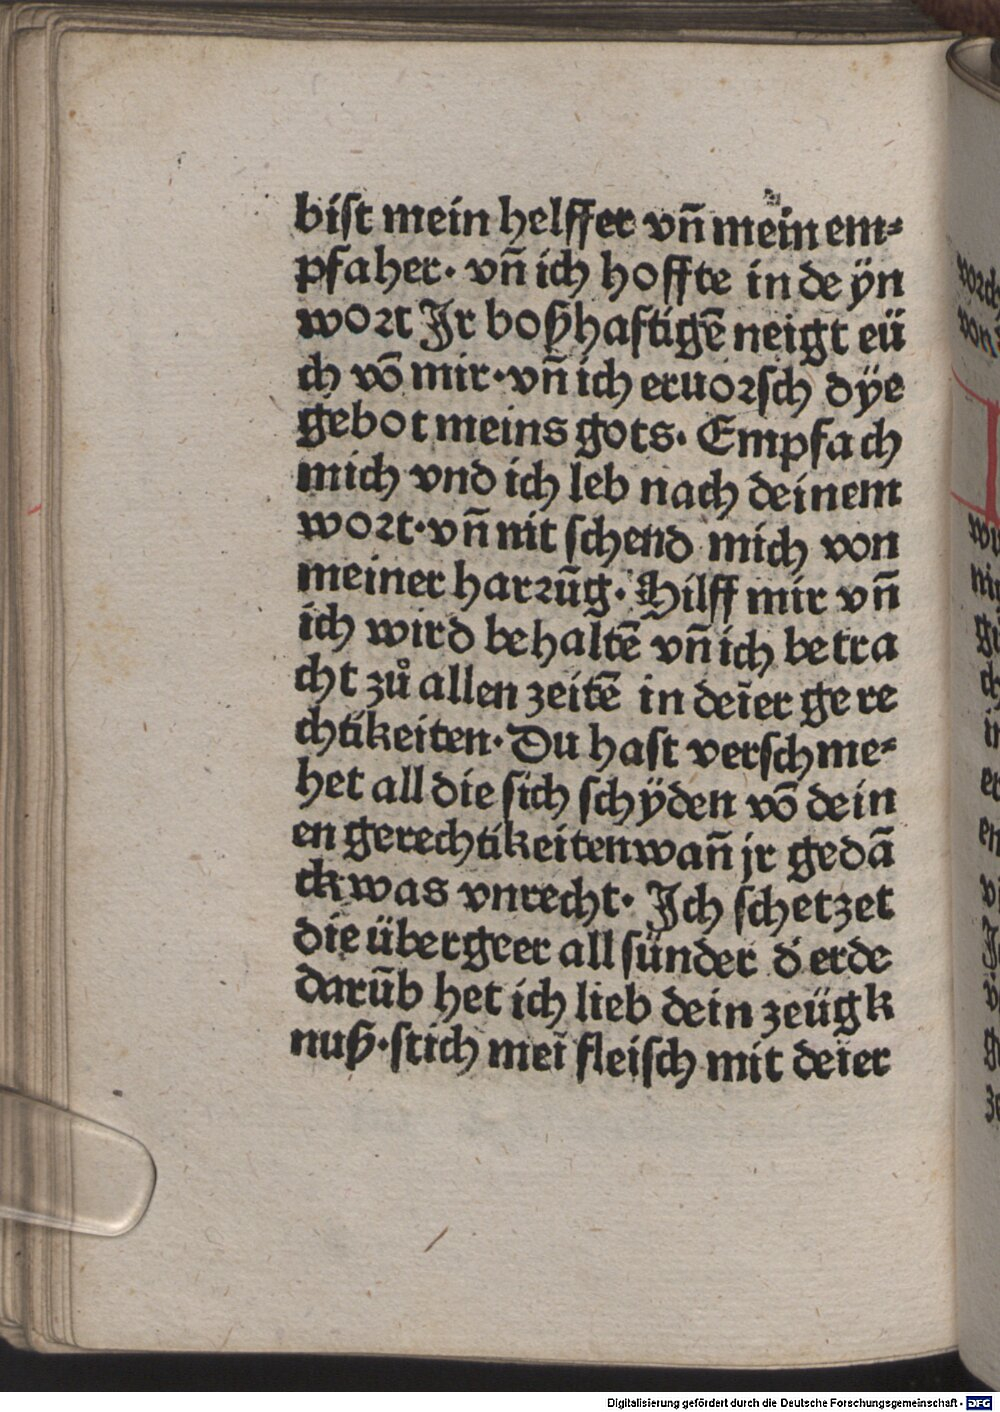 bist mein helffer vñ mein em⸗
pfaher· vñ ich hoffte in de ÿn
wort Jr boßhaftigē neigt eü
ch vō mir·vñ ich eruorsch dÿe
gebot meins gots· Empfach
mich vnd ich leb nach deinem
wort·vñ nit schend mich von
meiner harrūg· Hilff mir vñ
ich wird behaltē vñ ich betra
cht zů allen zeitē in deīer gere
chtikeiten· Du hast verschme⸗
het all die sich schÿden vō dein
en gerechtikeiten wañ jr gedā
ck was vnrecht· Jch schetzet
die übergeer all sünder d' erde
darūb het ich lieb dein zeügk
nuß·stich meī fleisch mit deier
Digitalisierung gefördert durch die Deutsche Forschungsgemeinschaft - DFG